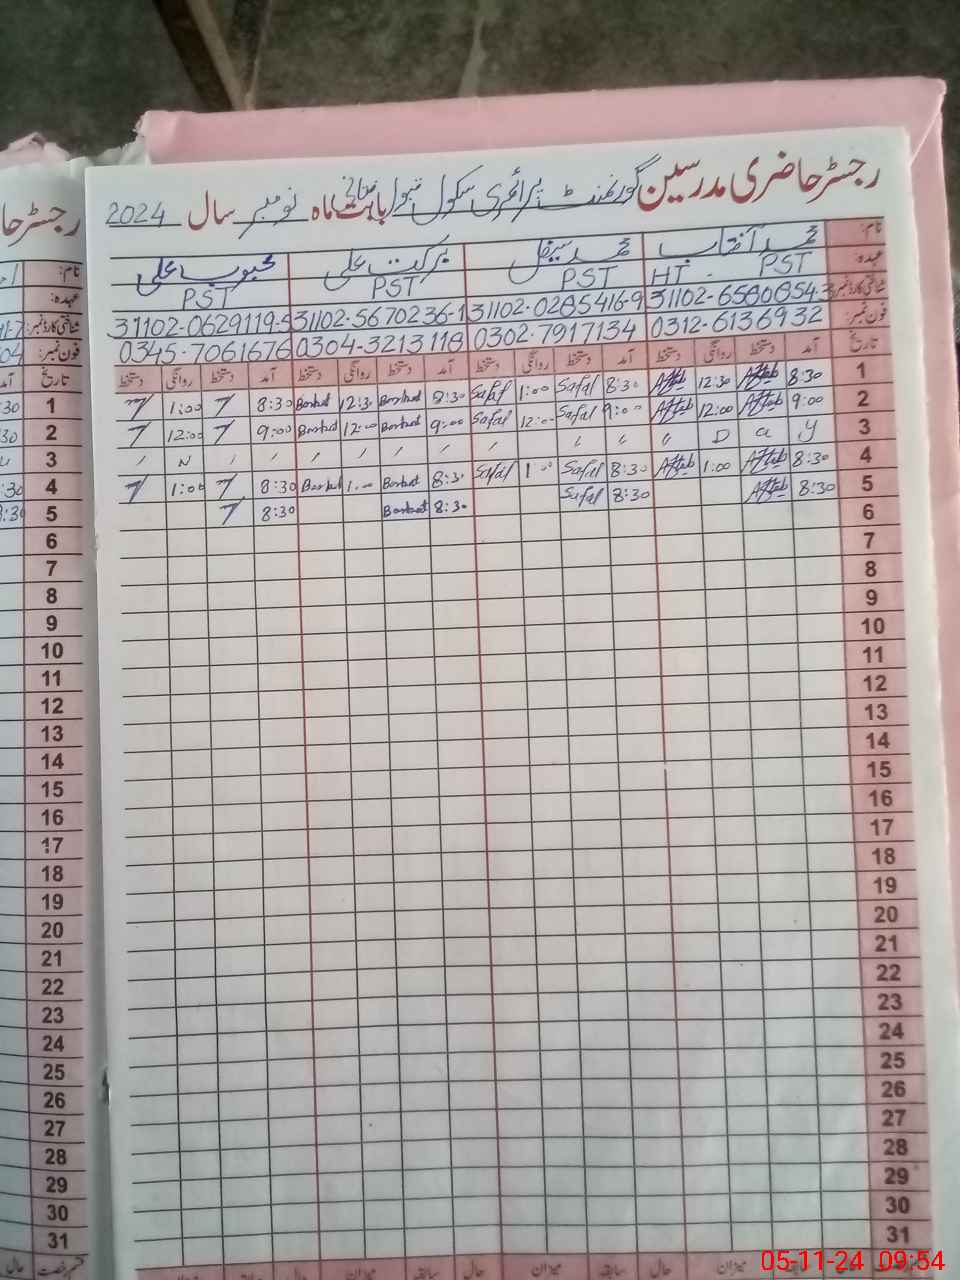 رجسٹر حاضری مدرسین گورنمنٹ پرائمری سکول بابت ماہ نومبر سال 2024
نام: محمد آفتاب محمد سیفل برکت علی محبوب علی
عہدہ: PST HT PST PST PST
شناختی کارڈ نمبر: 31102-6580854-3 31102-0285416-9 31102-5670236-1 31102-0629119-5
فون نمبر: 0312-6136932 0302-7917134 0304-3213118 0345-7061676
تاریخ آمد دستخط روانگی دستخط آمد دستخط روانگی دستخط آمد دستخط روانگی دستخط آمد دستخط روانگی دستخط
1 8:30 Aftab 12:30 Aftab 8:30 Safal 1:00 Safal 8:30 Barkat 12:30 Barkat 8:30 1:00
2 9:00 Aftab 12:00 Aftab 9:00 Safal 12:00 Safal 9:00 Barkat 12:00 Barkat 9:00 12:00
3 y a D N
4 8:30 Aftab 1:00 Aftab 8:30 Safal 1:00 Safal 8:30 Barkat 1:00 Barkat 8:30 1:00
5 8:30 Aftab 8:30 Safal 8:30 Barkat 8:30
6
7
8
9
10
11
12
13
14
15
16
17
18
19
20
21
22
23
24
25
26
27
28
29
30
31
حال سابقہ میزان حال سابقہ میزان حال
رجسٹر حا
نام:
عہدہ:
شناختی کارڈ نمبر:
فون نمبر:
تاریخ
1
2
3
4
5
6
7
8
9
10
11
12
13
14
15
16
17
18
19
20
21
22
23
24
25
26
27
28
29
30
31
قسم رخصت حال
05-11-24 09:54